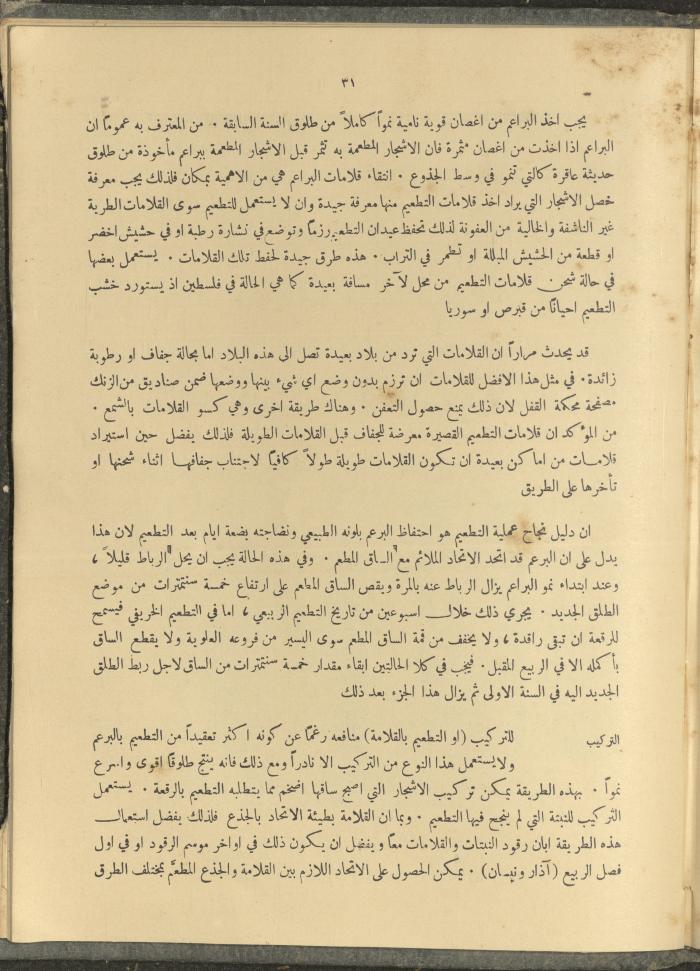 ٣١
يجب اخذ البراعم من اغصان قوية نامية نمواً كاملاً من طلوق السنة السابقة . من المعترف به عموماً ان
البراعم اذا اخذت من اغصان مثمرة فان الاشجار المطعمة به تثمر قبل الاشجار المطعمة ببراعم مأخوذة من طلوق
حديثة عاقرة كالتي تنمو في وسط الجذوع . انتقاء قلامات البراعم هي من الاهمية بمكان فلذلك يجب معرفة
خصل الاشجار التي يراد اخذ قلامات التطعيم منها معرفة جيدة وان لا يستعمل للتطعيم سوى القلامات الطرية
غير الناشفة والخالية من العفونة لذلك تحفظ عيدان التطعيم رزماً وتوضع في نشارة رطبة او في حشيش اخضر
او قطعة من الخشيش المبللة او تطمر في التراب . هذه طرق جيدة لحفظ تلك القلامات . يستعمل بعضها
في حالة شحن قلامات التطعيم من محل لآخر مسافة بعيدة كما هي الحالة في فلسطين اذ يستورد خشب
التطعيم احياناً من قبرص او سوريا
قد يحدث مراراً ان القلامات التي ترد من بلاد بعيدة تصل الى هذه البلاد اما بحالة جفاف او رطوبة
زائدة . في مثل هذا الافضل للقلامات ان ترزم بدون وضع اي شيء بينها ووضعها ضمن صناديق من الزنك
مصفحة محكمة القفل لان ذلك يمنع حصول التعفن . وهناك طريقة اخرى وهي كسو القلامات بالشمع .
من المؤكد ان قلامات التطعيم القصيرة معرضة للجفاف قبل القلامات الطويلة فلذلك يفضل حين استيراد
قلامات من اماكن بعيدة ان تكون القلامات طويلة طولاً كافياً لاجتناب جفافها اثناء شحنها او
تأخرها على الطريق
ان دليل نجاح عملية التطعيم هو احتفاظ البرعم بلونه الطبيعي ونضاجته بضعة ايام بعد التطعيم لان هذا
يدل على ان البرعم قد اتحد الاتحاد الملائم مع الساق المطعم . وفي هذه الحالة يجب ان يحل الرباط قليلاً ،
وعند ابتداء نمو البراعم يزال الرباط عنه بالمرة ويقص الساق المطعم على ارتفاع خمسة سنتمترات من موضع
الطلق الجديد . يجري ذلك خلال اسبوعين من تاريخ التطعيم الربيعي ، اما في التطعيم الخريفي فيسمح
للرقعة ان تبقى راقدة ، ولا يخفف من قمة الساق المطعم سوى اليسير من فروعه العلوية ولا يقطع الساق
بأكمله الا في الربيع المقبل . فيجب في كلا الحالتين ابقاء مقدار خمسة سنتمترات من الساق لاجل ربط الطلق
الجديد اليه في السنة الاولى ثم يزال هذا الجزء بعد ذلك
التركيب للتركيب (او التطعيم بالقلامة) منافعه رغماً عن كونه اكثر تعقيداً من التطعيم بالبرعم
ولا يستعمل هذا النوع من التركيب الا نادراً ومع ذلك فانه ينتج طلوقاً اقوى واسرع
نمواً . بهذه الطريقة يمكن تركيب الاشجار التي اصبح ساقها اضخم مما يتطلبه التطعيم بالرقعة . يستعمل
التركيب للنبتة التي لم ينجح فيها التطعيم . وبما ان القلامة بطيئة الاتحاد بالجذع فلذلك يفضل استعمال
هذه الطريقة ابان رقود النبتات والقلامات معاً ويفضل ان يكون ذلك في اواخر موسم الرقود او في اول
فصل الربيع (آذار ونيسان) . يمكن الحصول على الاتحاد اللازم بين القلامة والجذع المطعَّم بمختلف الطرق